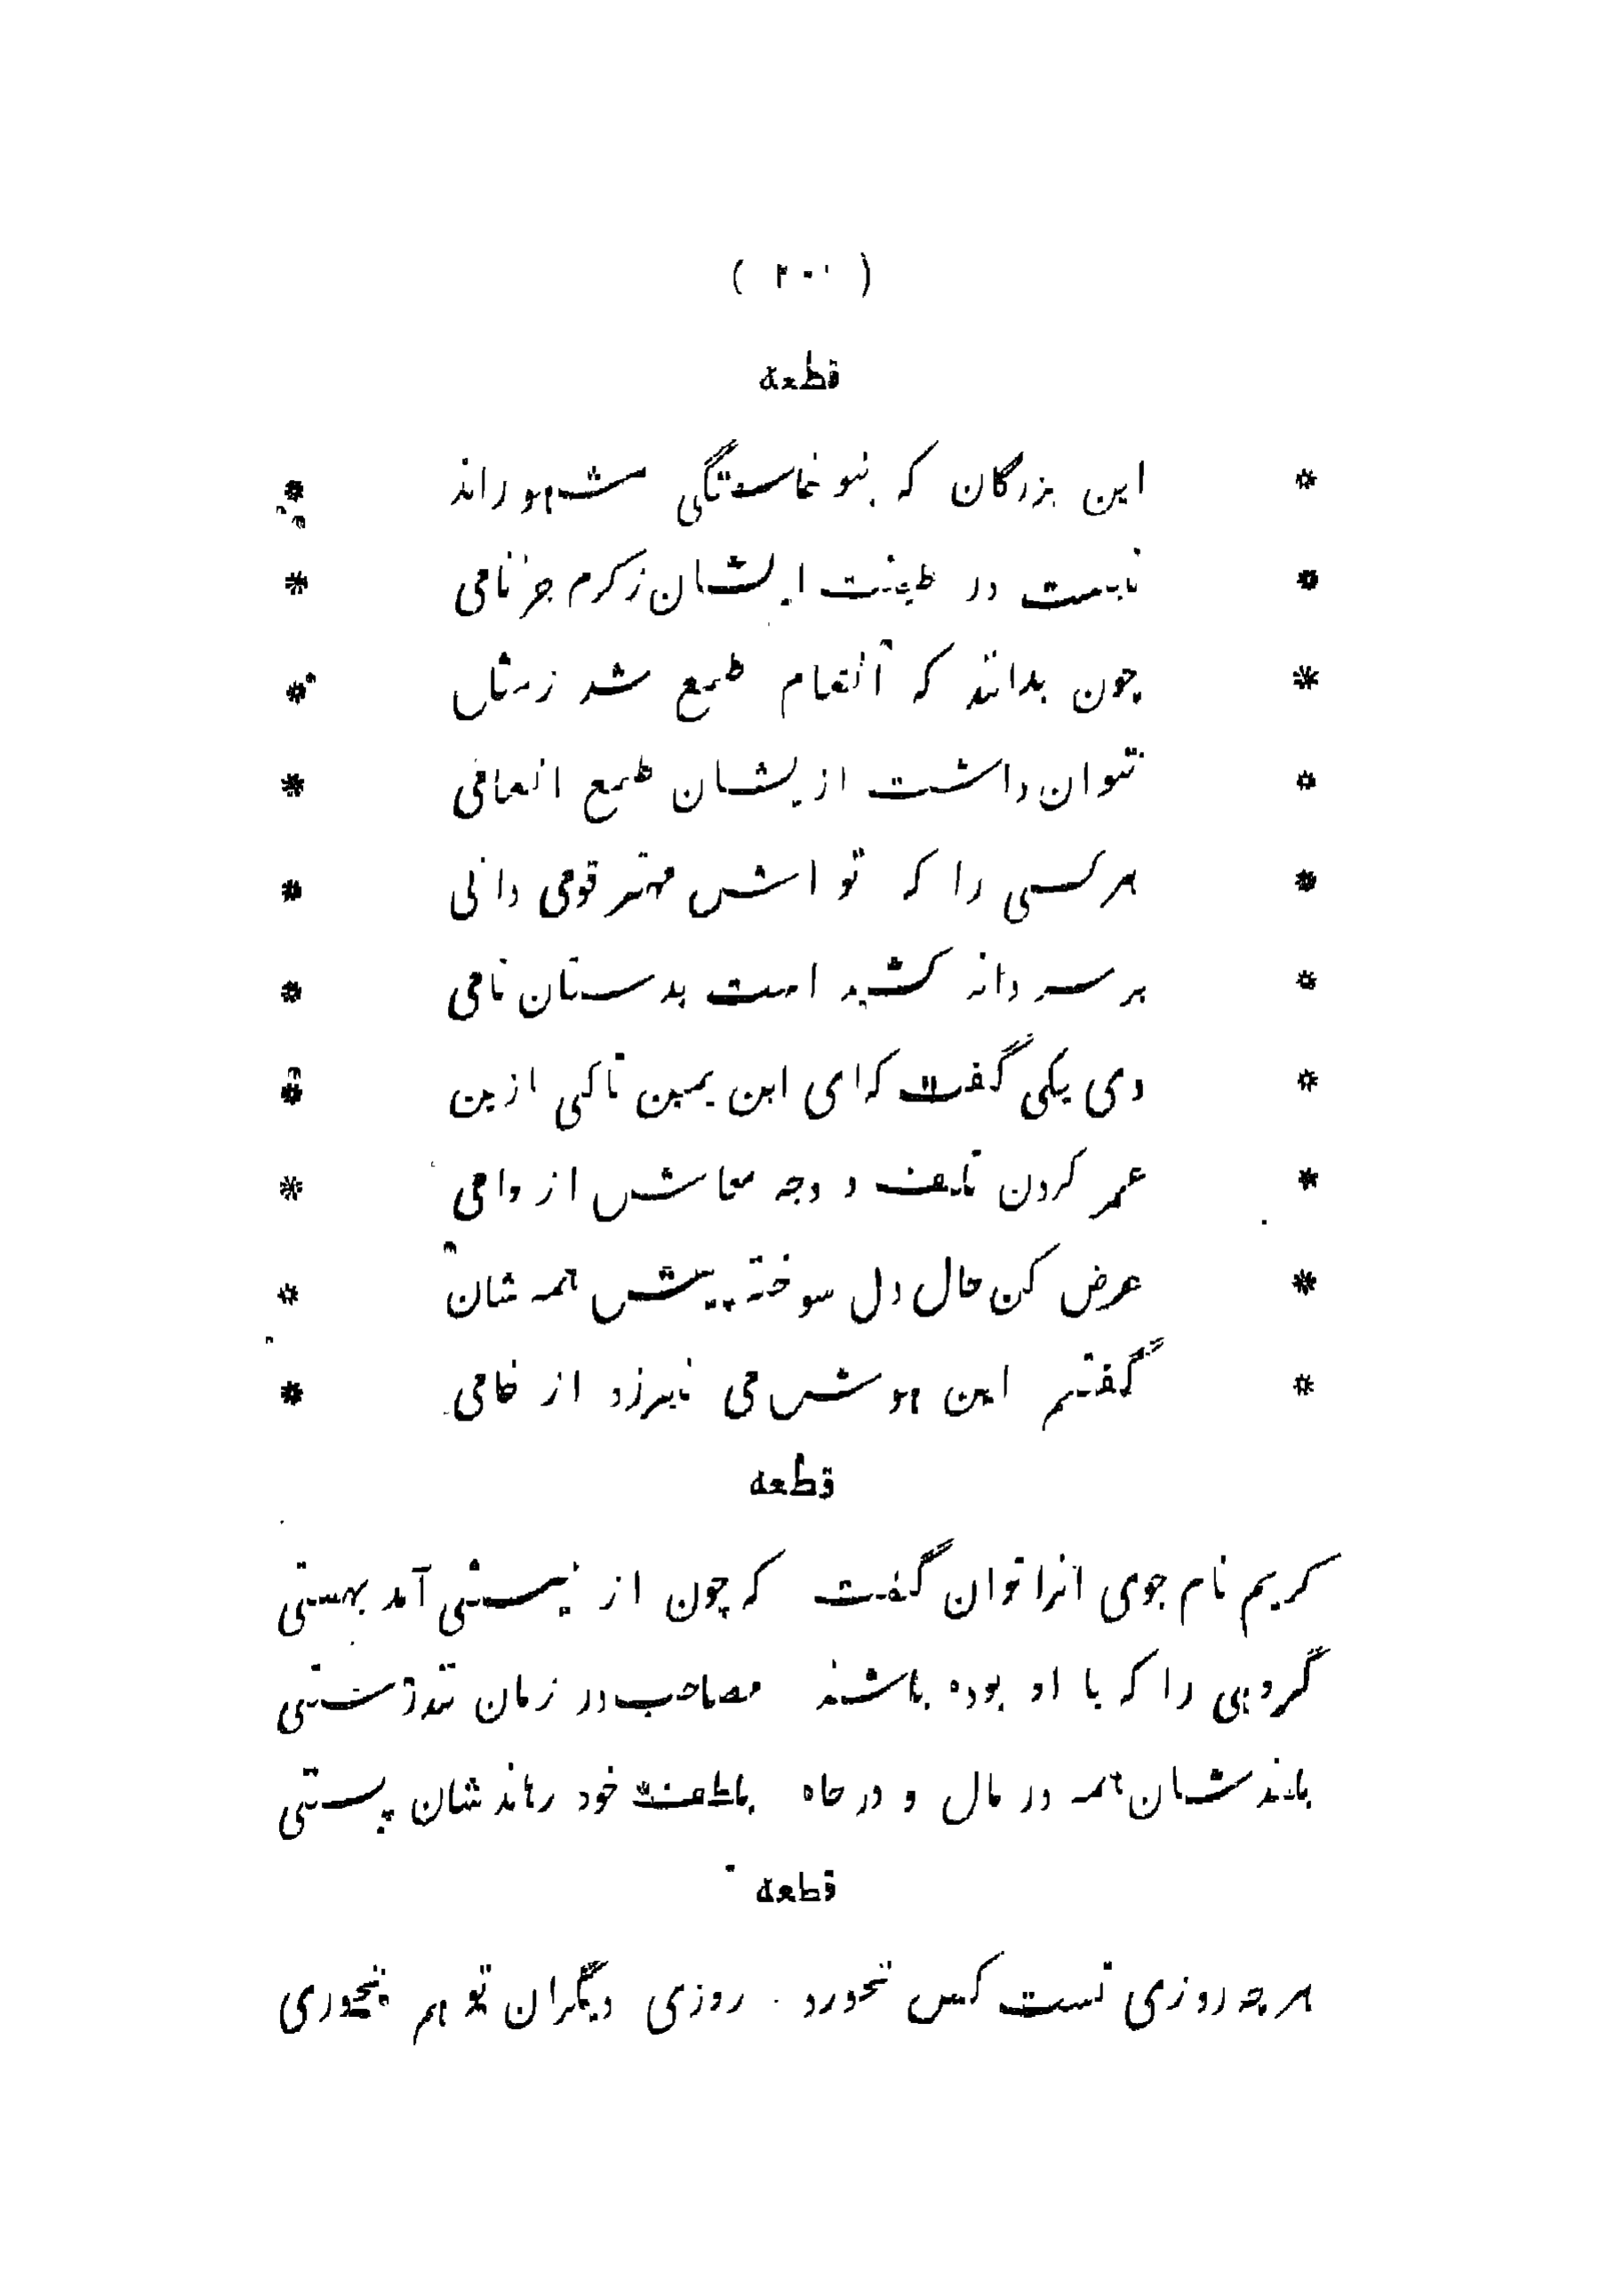 ( ۲۰۱ )
قطعه
* این بزرگان که بنو خاستگی مشهوراند *
* نیست در طینت ایشان ز کرم جز نامی *
* چون بدانند که انعام طمع شد زیشان *
* نتوان داشت ازیشان طمع انعامی *
* هر کسی را که تو اش مهتر قومی دانی *
* بر سر دانه کشید است بدستان نامی *
* دی یکی گفت کرای ابن یمین تاکی ازین *
* عمر کردن تلف و وجه معاش از وامی *
* عرض کن حال دل سوخته پیش همه شان *
* گفتم این هوش می نیرزد از خامی *
قطعه
کریم نام جوی انرا توان گفت که چون از نیستی آمد بهستی
گروهی را که با او بوده باشند مصاحب در زمان تندرستی
بلندشان همه در مال و در جاه بلطف خود رهاند شان پستی
قطعه
هر چه روزی تست کس نخورد روزی دیگران تو هم نخوری